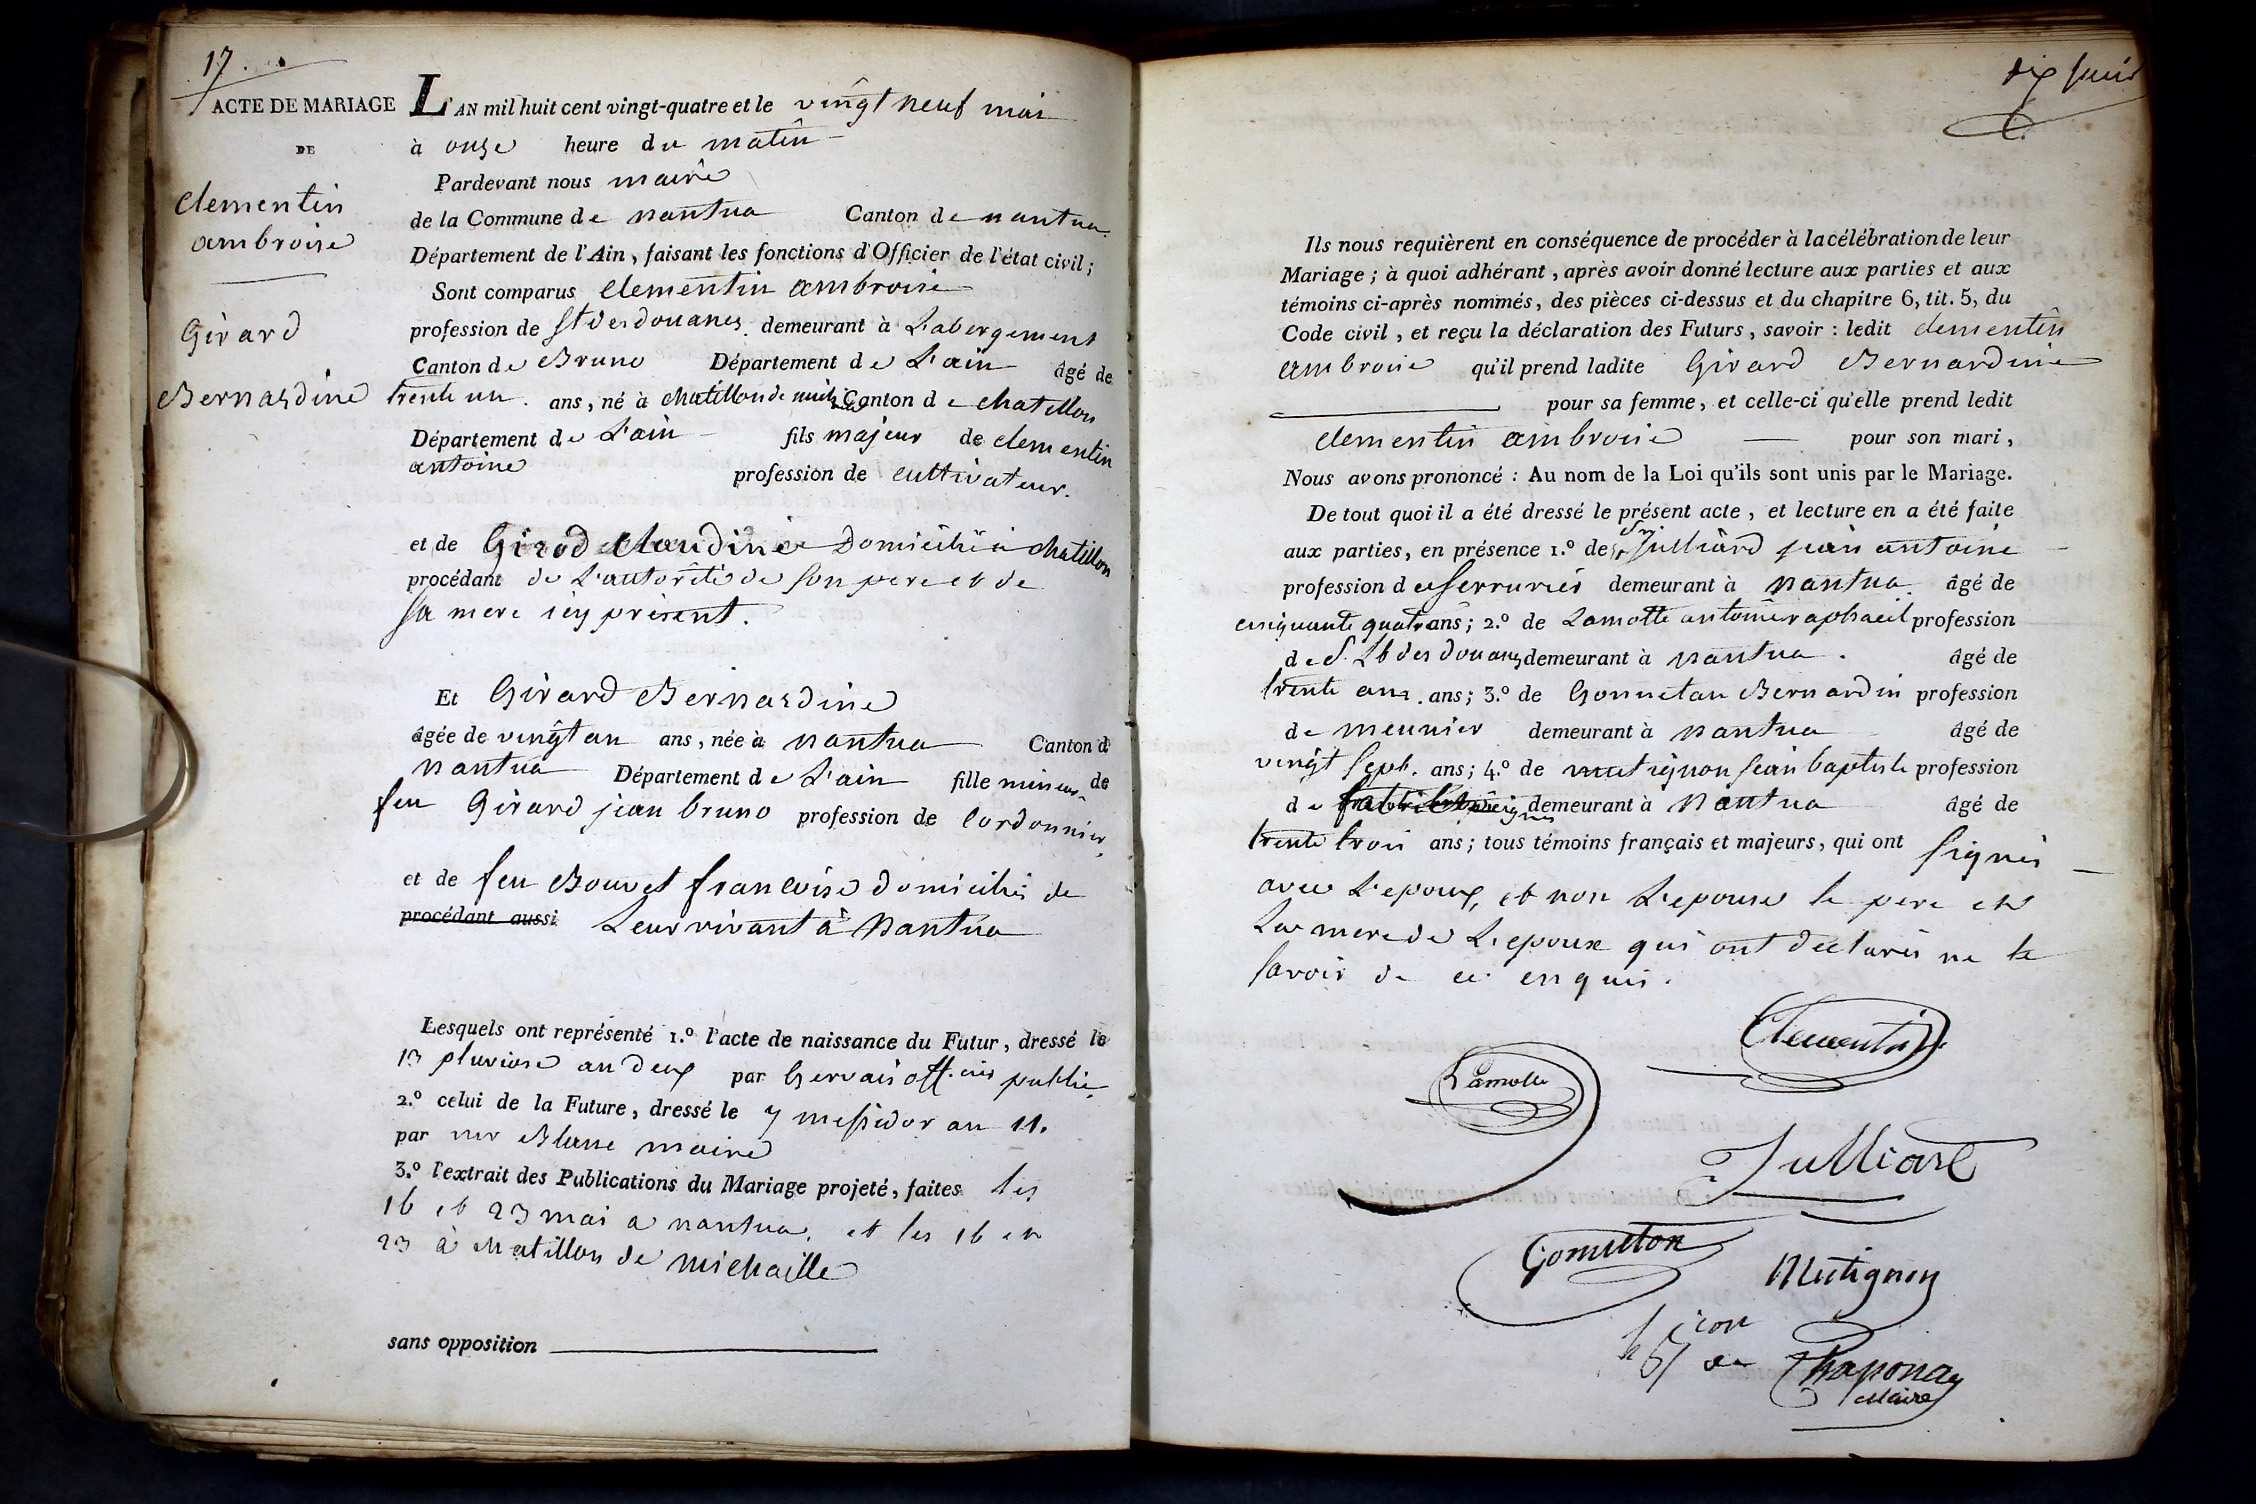 17.
ACTE DE MARIAGE
DE
Clementin
ambroise
Girard
Bernardine
L'AN mil huit cent vingt-quatre et le vingt neuf mai
à onze heure du matin
Pardevant nous maire
de la Commune de nantua Canton de nantua
Département de l'Ain, faisant les fonctions d'Officier de l'état civil;
Sont comparus Clementin ambroise
profession de st des douanes demeurant à L'abergement
Canton de Bruno Département de L'ain âgé de
trente un ans, né à chatillon de Canton de chatillon
Département de L'ain fils majeur de clementin
antoine profession de cultivateur.
et de Girod Claudine Domicilié à chatillon
procédant de L'autorité de son pere et de
sa mere icy présent.
Et Girard Bernardine
âgée de vingt an ans, née à nantua Canton d
nantua Département de L'ain fille mineur de
feu Girard jean bruno profession de Cordonnier,
et de feu Bouvet francoise domiciliés de
procédant aussi Leur vivant à Nantua
Lesquels ont représenté 1.º l'acte de naissance du Futur, dressé le
13 pluviose an deux par Gervais off.cier public,
2.º celui de la Future, dressé le 7 messidor an 11.
par mr Blanc maire
3.º l'extrait des Publications du Mariage projeté, faites les
16 et 23 mai a nantua, et les 16 et
23 à chatillon de michaille
sans opposition
dix huit
Ils nous requièrent en conséquence de procéder à la célébration de leur
Mariage; à quoi adhérant, après avoir donné lecture aux parties et aux
témoins ci-après nommés, des pièces ci-dessus et du chapitre 6, tit. 5, du
Code civil, et reçu la déclaration des Futurs, savoir: ledit clementin
ambroise qu'il prend ladite Girard Bernardine
pour sa femme, et celle-ci qu'elle prend ledit
clementin ambroise pour son mari,
Nous avons prononcé: Au nom de la Loi qu'ils sont unis par le Mariage.
De tout quoi il a été dressé le présent acte, et lecture en a été faite
aux parties, en présence 1.º de Julliard jean antoine
profession de serrurier demeurant à nantua. âgé de
cinquante quatre ans; 2.º de Lamotte antoine raphaeil profession
de S. Lt des douanes demeurant à nantua. âgé de
trente ans. ans; 3.º de Gonnetan Bernardin profession
de meunier demeurant à nantua âgé de
vingt sept. ans; 4.º de mutignon jean baptiste profession
de demeurant à Nantua âgé de
trente trois ans; tous témoins français et majeurs, qui ont signés
avec L'epoux, et non L'epouse le pere et
La mere de L'epoux qui ont declarés ne le
savoir de ce enquis.
Clementin
Lamotte
Julliard
Gonnetton
Mutignon
de Chaponay
Maire